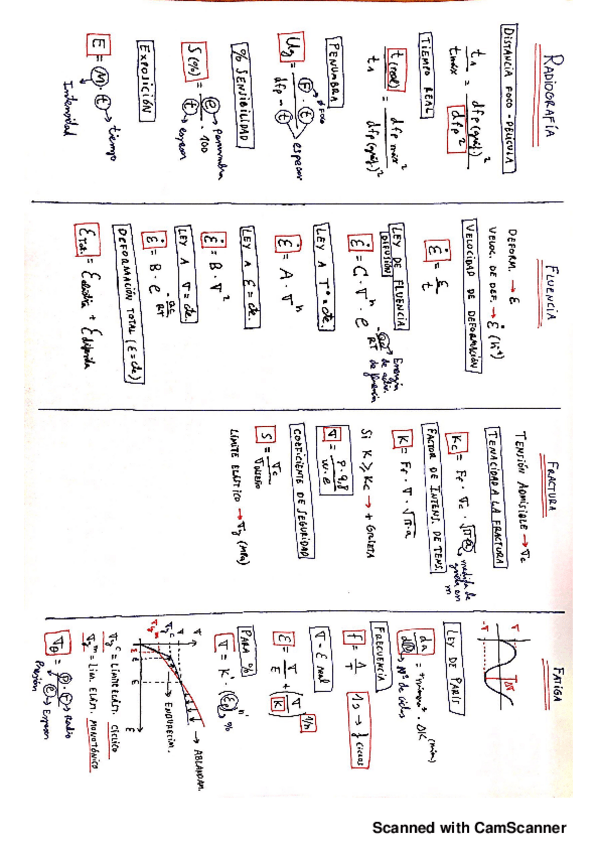 RADIOGRAFÍA
DISTANCIA FOCO-PELÍCULA
t₁ / tmáx = dfp (gráf.)² / dfp²
TIEMPO REAL
t (real) / t₁ = dfp máx² / dfp (gráf.)²
PENUMBRA
Ug = F · t / dfp - t
espesor
% SENSIBILIDAD
S(%) = e / t · 100
penumbra
espesor
EXPOSICIÓN
E = M · t → tiempo
Intensidad
FLUENCIA
DEFORM. → ε
VELOC. DE DEF. → ε̇ (h⁻¹)
VELOCIDAD DE DEFORMACIÓN
ε̇ = ε / t
LEY DE FLUENCIA
DIFUSIÓN
ε̇ = C · ∇ⁿ · e^(-Qc/RT)
Energía de activ. de fluencia
LEY A Tº = cte.
ε̇ = A · ∇ⁿ
LEY A ε = cte.
ε̇ = B · ∇²
LEY A ∇ = cte.
ε̇ = B · e^(-Qc/RT)
DEFORMACIÓN TOTAL (ε = cte)
εTot. = εelástica + εdiferida
FRACTURA
TENSIÓN ADMISIBLE → ∇c
TENACIDAD A LA FRACTURA
Kc = Fr · ∇c · √π·a
medida de grieta en m
FACTOR DE INTENS. DE TENS.
K = Fr · ∇ · √π·a
Si K ≥ Kc → + GRIETA
∇ = P · 9,8 / w · e
COEFICIENTE DE SEGURIDAD
S = ∇c / ∇diseño
LÍMITE ELÁSTICO → ∇y (MPa)
FATIGA
LEY DE PARIS
da / dN = · ΔK
Nº de ciclos
FRECUENCIA
f = 1 / T
1 s → f ciclos
∇ - ε real
ε = ∇ / E + (∇ / K)^(1/n)
PARA %
∇ = K' (ε)ⁿ' %
ABLANDAM.
ENDURECIM.
∇yᶜ = LÍMITE ELÁST. CÍCLICO
∇yᵐ = LIM. ELÁST. MONOTÓNICO
∇θ = P · r / e
Radio
Espesor
Presión
Scanned with CamScanner